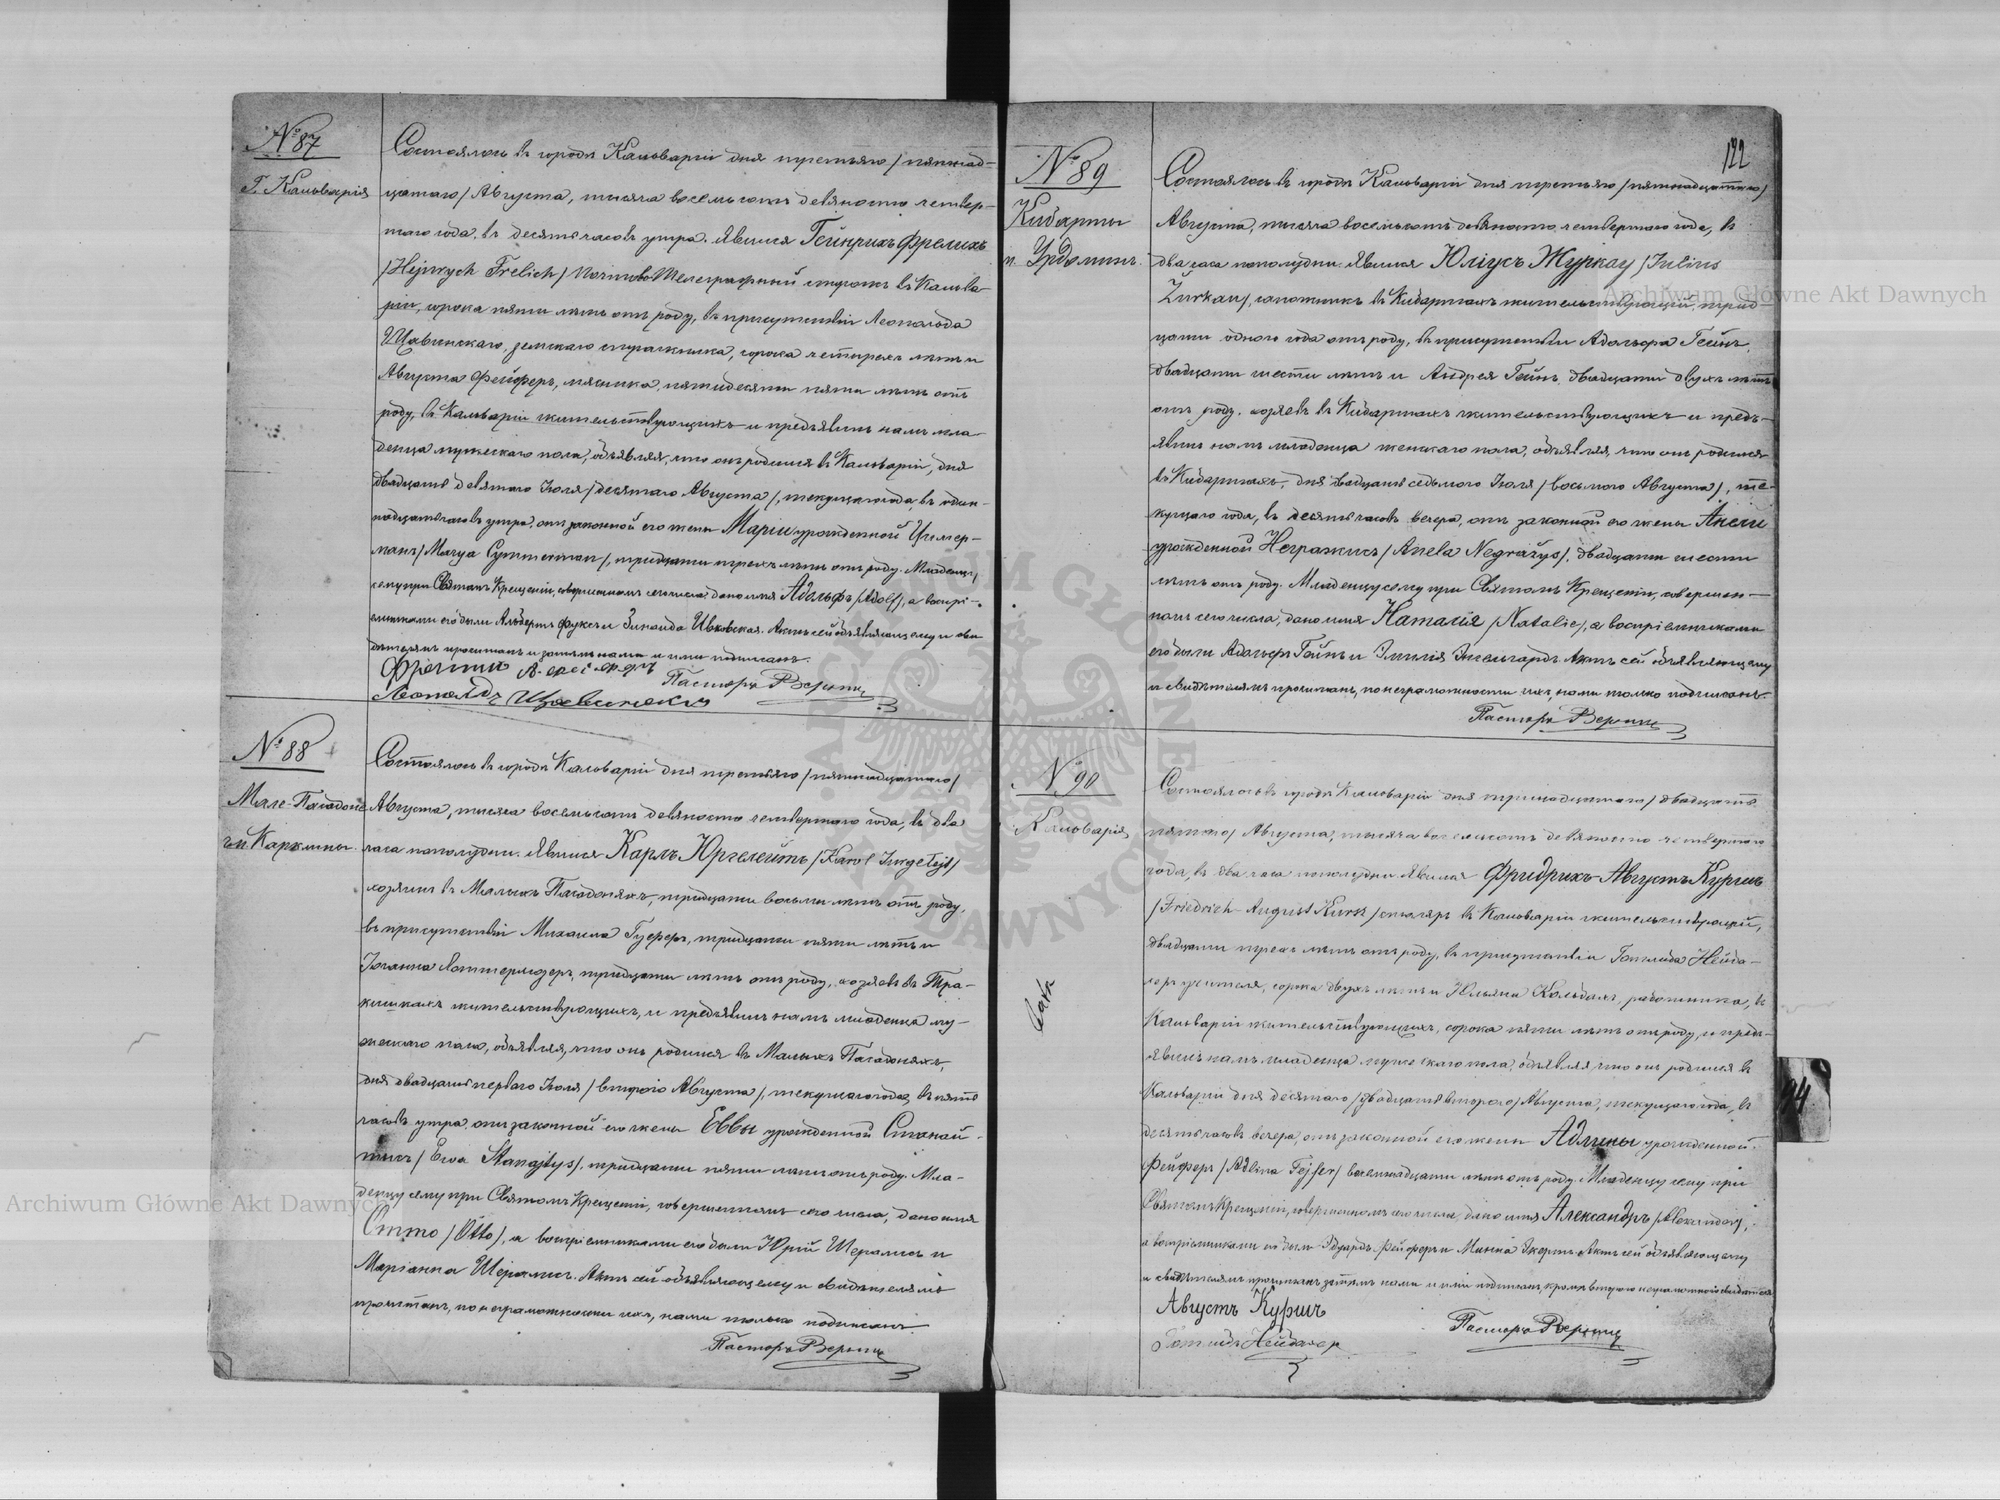 № 87
Г. Кальварія
Состоялось въ городѣ Кальваріи дня третьяго /пятнад-
цатаго/ Августа, тысяча восемьсотъ девяносто четвер-
таго года, въ десять часовъ утра. Явился Гейнрихъ Фрелихъ
/Hejnrych Frelich/ почтово-телеграфный сторожъ въ Кальва-
ріи, сорока пяти лѣтъ отъ роду, въ присутствіи Леопольда
Щавинскаго, земскаго стражника, сорока четырехъ лѣтъ и
Августа Фейферъ, мясника, пятидесяти пяти лѣтъ отъ
роду, въ Кальваріи жительствующихъ и предъявилъ намъ мла-
денца мужескаго пола, объявляя, что онъ родился въ Кальваріи, дня
двадцать девятаго Іюля /десятаго Августа/, текущаго года, въ один-
надцать часовъ утра, отъ законной его жены Маріи урожденной Цимер-
манъ /Marya Cymmerman/, тридцати трехъ лѣтъ отъ роду. Младенцу
сему при Святомъ Крещеніи, совершенномъ сего числа дано имя Адольфъ /Adolf/, а воспрі-
емниками его были Альбертъ Фуксъ и Зинаида Ивковская. Актъ сей объявляющему и сви-
дѣтелямъ прочитанъ и затѣмъ нами и ими подписанъ.
Пасторъ
Леопольдъ Щавинскій
№ 88
Мале-Пагодоне
Состоялось въ городѣ Кальваріи дня третьяго /пятнадцатаго/
Августа, тысяча восемьсотъ девяносто четвертаго года, въ два
часа пополудни. Явился Карлъ Юргелейтъ /Karol Jurgelejt/
хозяинъ въ Малыхъ Пагодоняхъ, тридцати восьми лѣтъ отъ роду,
въ присутствіи Михаила Гуферъ, тридцати пяти лѣтъ и
Іоганна Лоттермозеръ, тридцати лѣтъ отъ роду, хозяевъ въ Тра-
кишкахъ жительствующихъ, и предъявилъ намъ младенца му-
жескаго пола, объявляя, что онъ родился въ Малыхъ Пагодоняхъ,
дня двадцать перваго Іюля /втораго Августа/, текущаго года, въ пять
часовъ утра, отъ законной его жены Еввы урожденной Станай-
тисъ /Ewa Stanajtys/, тридцати пяти лѣтъ отъ роду. Мла-
денцу сему при Святомъ Крещеніи, совершенномъ сего числа, дано имя
Отто /Otto/, а воспріемниками его были Юрій Шералисъ и
Маріанна Шералисъ. Актъ сей объявляющему и свидѣтелямъ
прочитанъ, по неграмотности ихъ, нами только подписанъ.
Пасторъ
122
№ 89
Кибарты
п. Урдоминъ.
Состоялось въ городѣ Кальваріи дня третьяго /пятнадцатаго/
Августа, тысяча восемьсотъ девяносто четвертаго года, въ
два часа пополудни. Явился Юліусъ Журкау /Julius
Żurkau/, сапожникъ въ Кибартахъ жительствующій, трид-
цати одного года отъ роду, въ присутствіи Адольфа Гейнъ,
двадцати шести лѣтъ и Андрея Гейнъ, двадцати двухъ лѣтъ
отъ роду, хозяевъ въ Кибартахъ жительствующихъ и предъ-
явилъ намъ младенца женскаго пола, объявляя, что онъ родился
въ Кибартахъ, дня двадцать седьмого Іюля /восьмого Августа/, те-
кущаго года, въ десять часовъ вечера, отъ законной его жены Анели
урожденной Негражисъ /Anela Negrażys/, двадцати шести
лѣтъ отъ роду. Младенцу сему при Святомъ Крещеніи, совершен-
номъ сего числа, дано имя Наталія /Natalie/, а воспріемниками
его были Адольфъ Гейнъ и Эмилія Энгельгардъ. Актъ сей объявляющему
и свидѣтелямъ прочитанъ, по неграмотности ихъ, нами только подписанъ.
Пасторъ
№ 90
Кальварія
Состоялось въ городѣ Кальваріи дня тринадцатаго /двадцать
пятаго/ Августа, тысяча восемьсотъ девяносто четвертаго
года, въ два часа пополудни. Явился Фридрихъ-Августъ Куршъ
/Friedrich-August Kurs/ столяръ въ Кальваріи жительствующій,
двадцати трехъ лѣтъ отъ роду, въ присутствіи Готлиба Нейба-
херъ учителя, сорока двухъ лѣтъ и Юльяна Кольдамъ, работника, въ
Кальваріи жительствующихъ, сорока пяти лѣтъ отъ роду, и предъ-
явилъ намъ младенца мужескаго пола, объявляя что онъ родился въ
Кальваріи дня десятаго /двадцать второго/ Августа, текущаго года, въ
десять часовъ вечера, отъ законной его жены Адлины урожденной
Фейферъ /Adlina Fejfer/ восемнадцати лѣтъ отъ роду. Младенцу сему при
Святомъ Крещеніи, совершенномъ сего числа, дано имя Александръ /Alexander/,
а воспріемниками его были Эдуардъ Фейферъ и Минна Экертъ. Актъ сей объявляющему
и свидѣтелямъ прочитанъ, затѣмъ нами и ими подписанъ, кромѣ второго неграмотнаго свидѣтеля.
Августъ Куршъ
Готлибъ Нейбахеръ
Пасторъ
94
Archiwum Główne Akt Dawnych
Archiwum Główne Akt Dawnych
ARCHIWUM GŁÓWNE AKT DAWNYCH